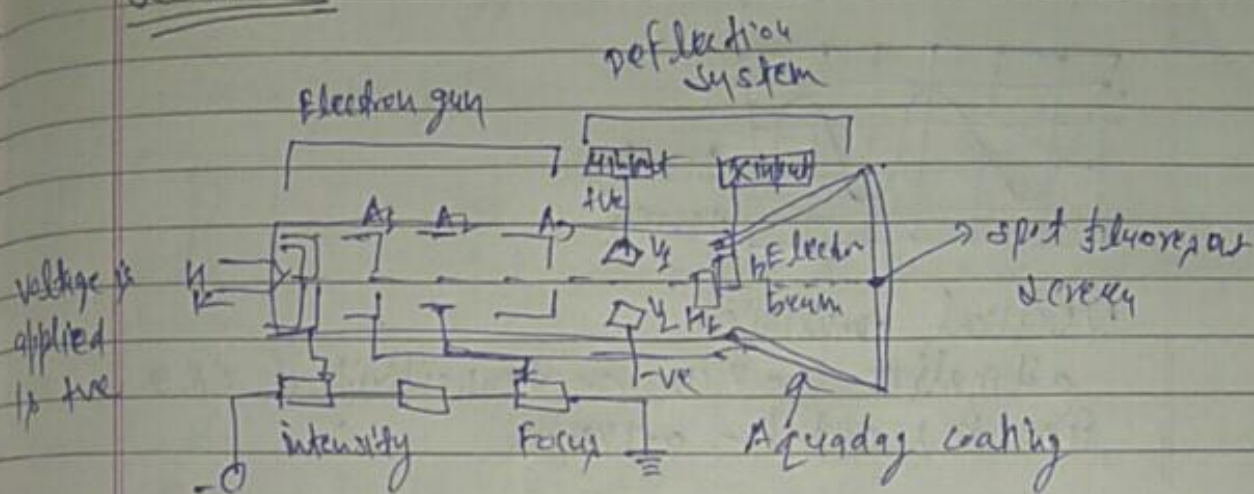 Deflection
system
Electron gun
X input
+ve
A1 A2 A3
Y1
Electron
beam
spot fluorescent
screen
voltage is
applied
is +ve
H
K
Y2
-ve
intensity
Focus
Aquadag coating
-